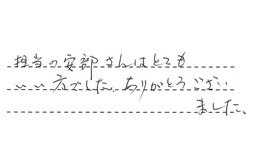 担当の安部さんはとても
いい方でした。ありがとうござい
ました。